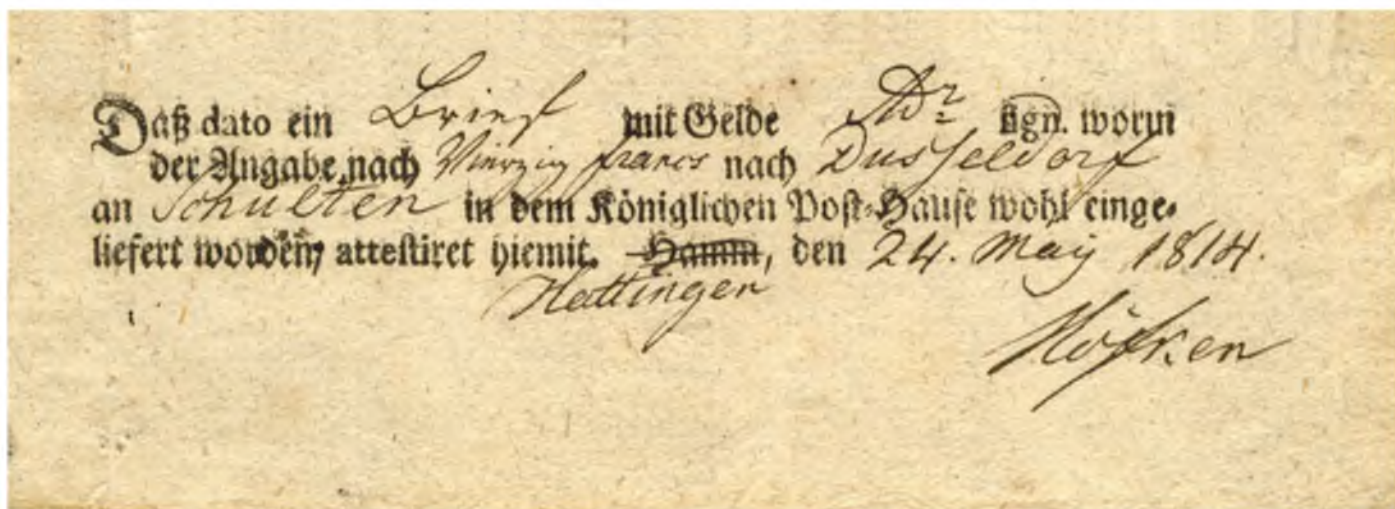 Daß dato ein Brief mit Gelde Adr sign. worin
der Angabe nach Vierzig francs nach Dusseldorf
an Schulten in dem Königlichen Post-Hause wohl einge-
liefert worden, attestiret hiemit. Hamm, den 24. May 1814.
Hattingen
Höfken